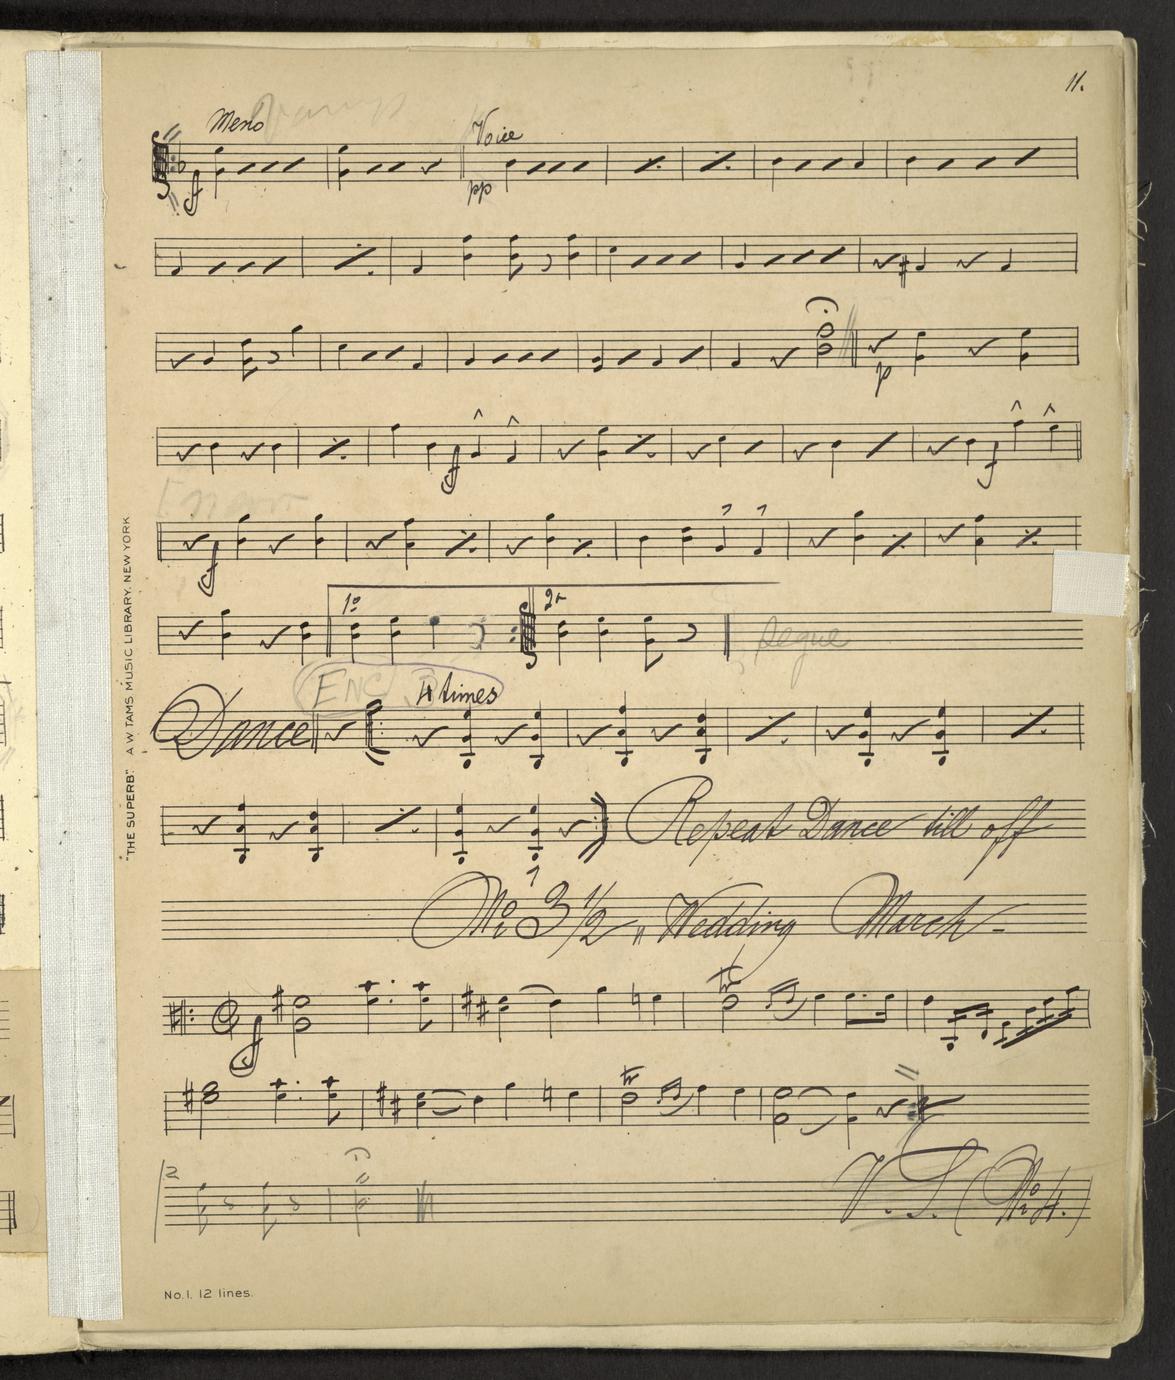 11.
Meno
Voice
f
pp
p
f
f
f
1º
2º
Segue
ENC 3
4 times
Dance
Repeat Dance till off
No. 3 1/2 „ Wedding March -
f
tr
tr
2
V. S. (No. 4.)
"THE SUPERB". A.W. TAMS MUSIC LIBRARY, NEW YORK
No. 1. 12 lines.